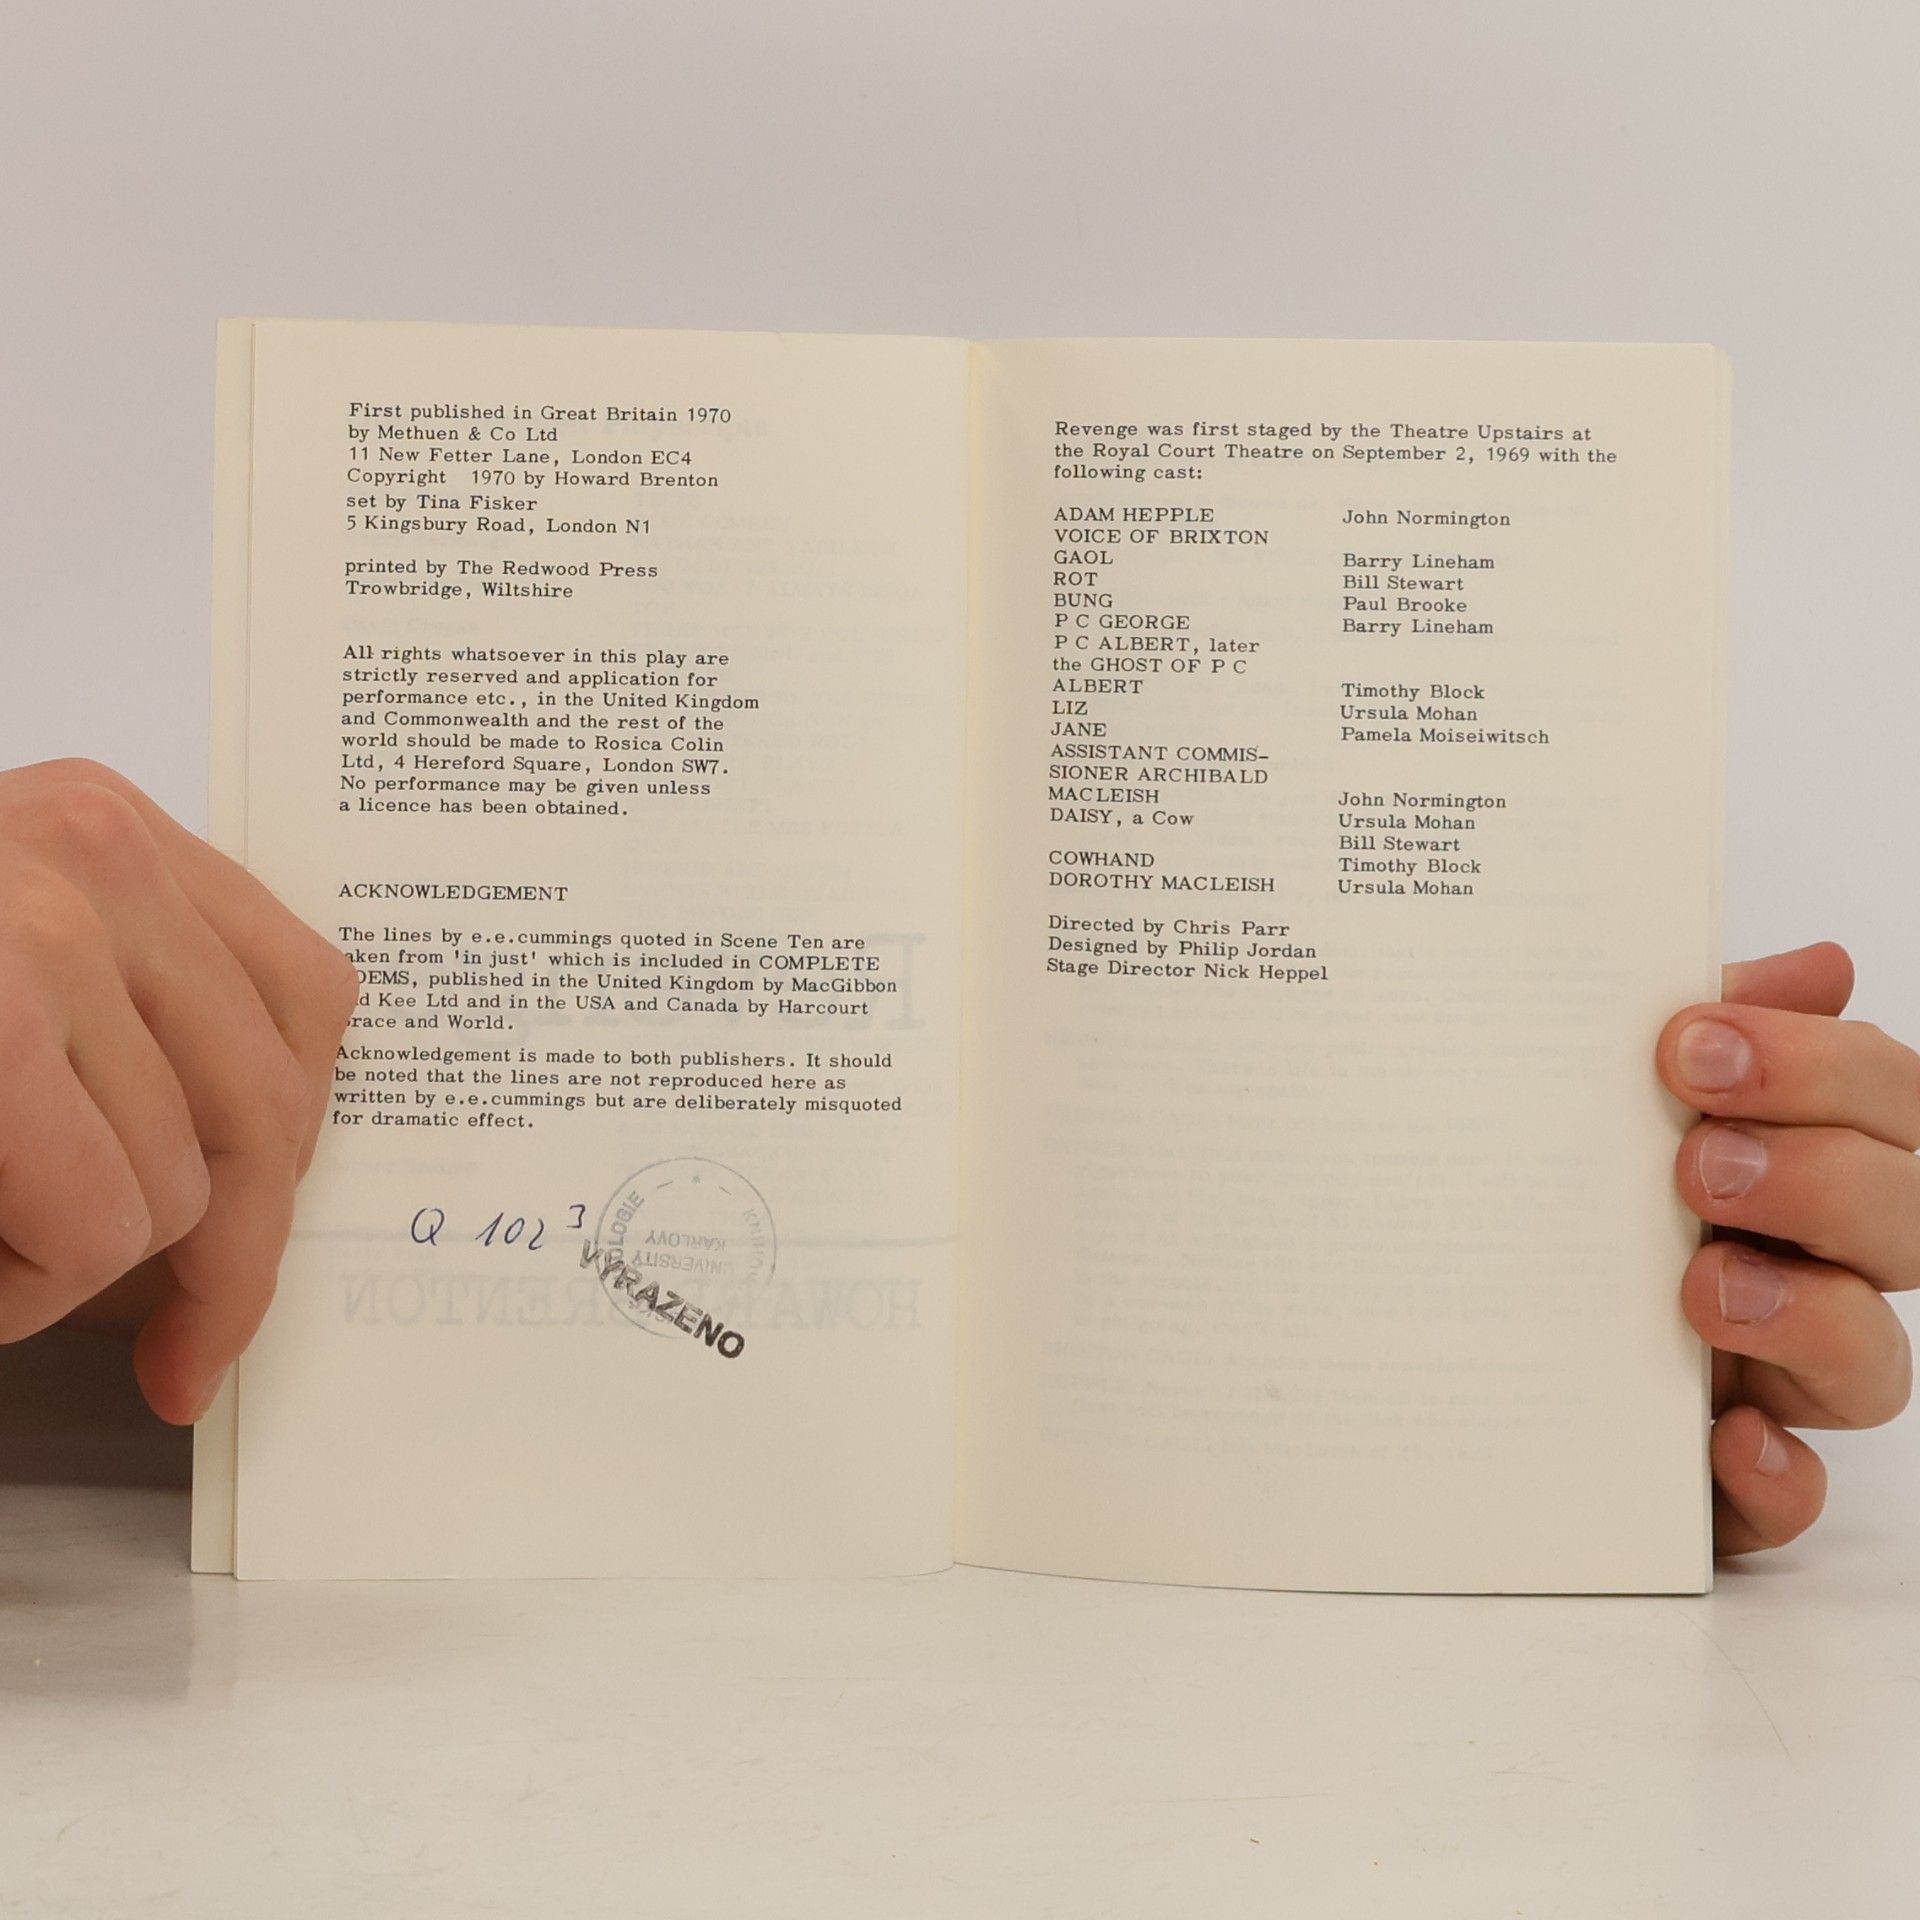 First published in Great Britain 1970
by Methuen & Co Ltd
11 New Fetter Lane, London EC4
Copyright 1970 by Howard Brenton
set by Tina Fisker
5 Kingsbury Road, London N1
printed by The Redwood Press
Trowbridge, Wiltshire
All rights whatsoever in this play are
strictly reserved and application for
performance etc., in the United Kingdom
and Commonwealth and the rest of the
world should be made to Rosica Colin
Ltd, 4 Hereford Square, London SW7.
No performance may be given unless
a licence has been obtained.
ACKNOWLEDGEMENT
The lines by e.e.cummings quoted in Scene Ten are
aken from 'in just' which is included in COMPLETE
OEMS, published in the United Kingdom by MacGibbon
d Kee Ltd and in the USA and Canada by Harcourt
race and World.
Acknowledgement is made to both publishers. It should
be noted that the lines are not reproduced here as
written by e.e.cummings but are deliberately misquoted
for dramatic effect.
Q 102 3
UNIVERSITY
KARLOVY
VYŘAZENO
HOWARD BRENTON
Revenge was first staged by the Theatre Upstairs at
the Royal Court Theatre on September 2, 1969 with the
following cast:
ADAM HEPPLE John Normington
VOICE OF BRIXTON
GAOL Barry Lineham
ROT Bill Stewart
BUNG Paul Brooke
P C GEORGE Barry Lineham
P C ALBERT, later
the GHOST OF P C
ALBERT Timothy Block
LIZ Ursula Mohan
JANE Pamela Moiseiwitsch
ASSISTANT COMMIS-
SIONER ARCHIBALD
MACLEISH John Normington
DAISY, a Cow Ursula Mohan
Bill Stewart
COWHAND Timothy Block
DOROTHY MACLEISH Ursula Mohan
Directed by Chris Parr
Designed by Philip Jordan
Stage Director Nick Heppel